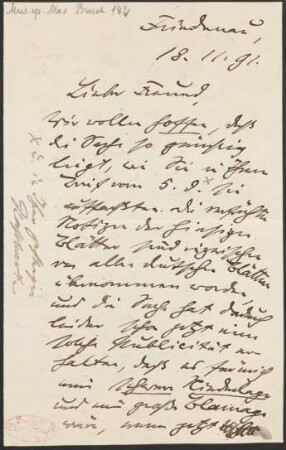 Mus. ep. Max Bruch 182
Friedenau,
18. 11. 91.
Lieber Freund,
wir wollen hoffen, daß
die Sache so günstig
liegt, wie Sie in Ihrem
Brief vom 5. d. sie
auffaßten. Die
Notizen der hiesigen
Blätter sind
von allen deutschen Blättern
übernommen worden
und die Sache hat dadurch
leider schon jetzt eine
solche Publicität er-
halten, daß es für mich
eine schwere Niederlage
und eine große Blamage
wäre, wenn jetzt